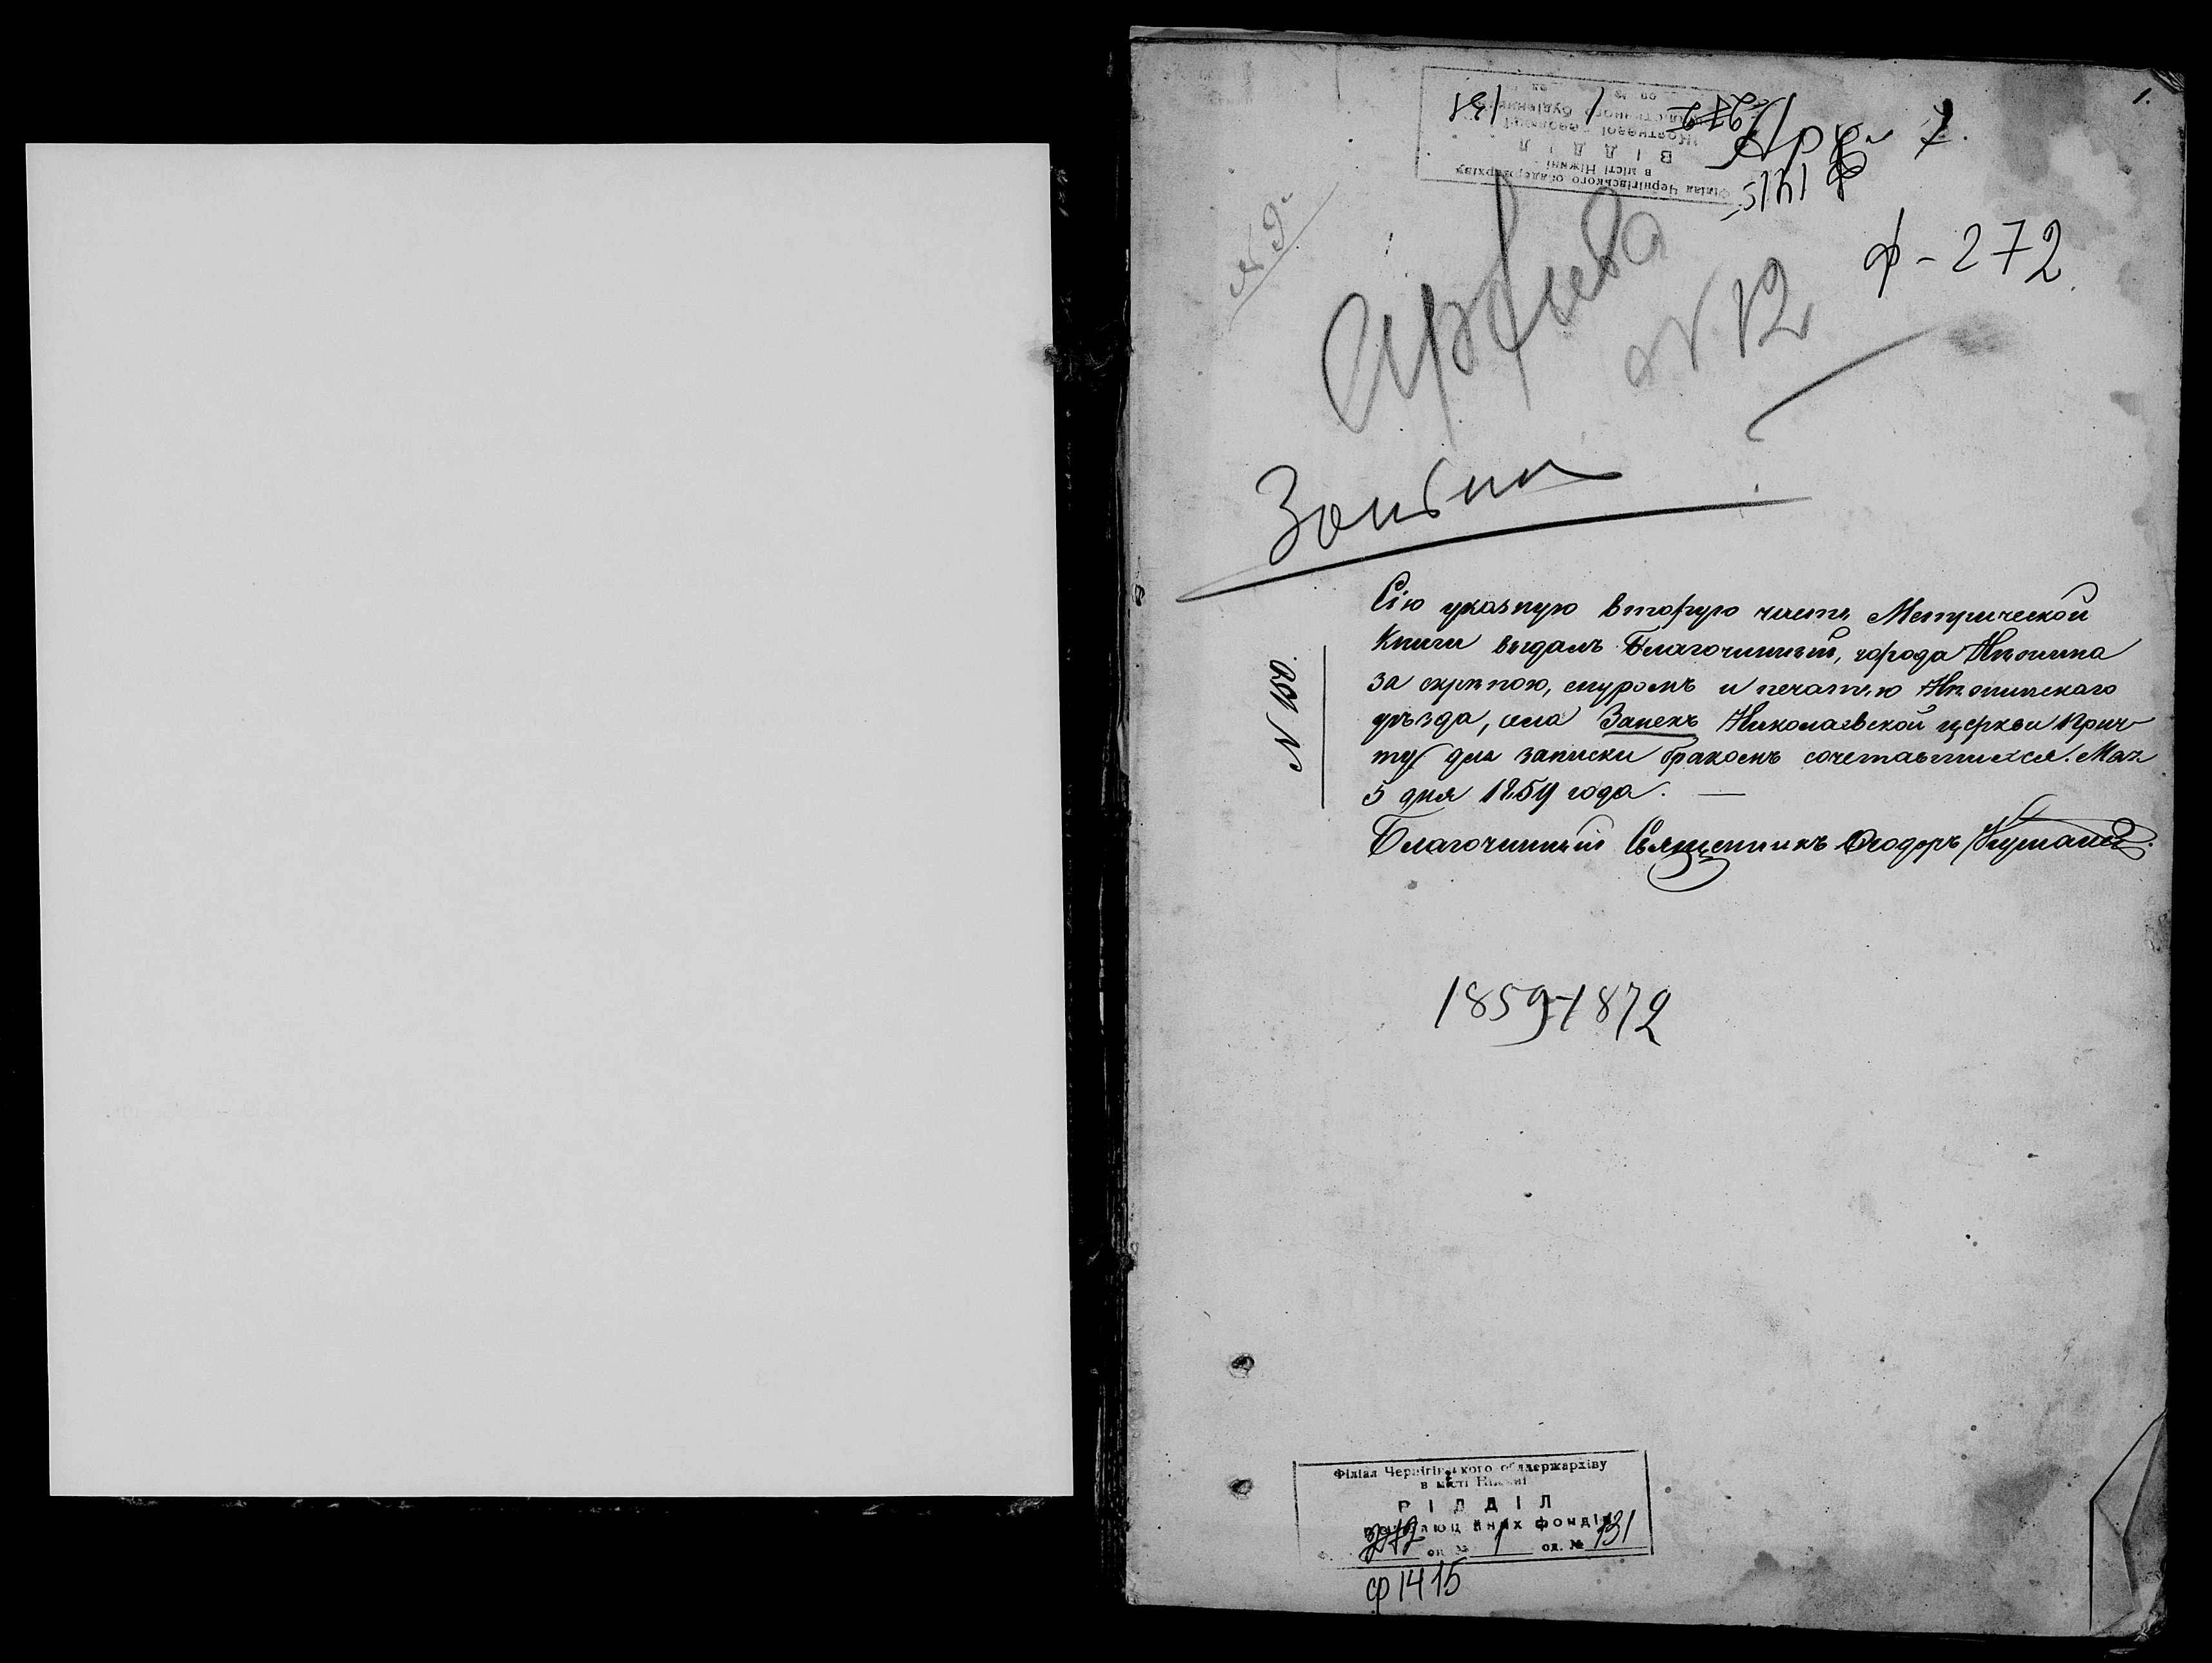 1.
Філіал Чернігівського облдержархіву
в місті Ніжині
ВІДДІЛ
Жовтневої революції
272 1 131
ф 1415
ф - 272
№ 9
№ 12
№ 150.
Сію указную вторую часть Метрической
Книги выдалъ Благочинный, города Нѣжина
за скрѣпою, снуромъ и печатью Нѣжинскаго
уѣзда, села Занекъ Николаевской церкви прич-
ту для записки бракомъ сочетавшихся. Маа
5 дня 1859 года. —
Благочинный Священникъ Ѳеодоръ
1859-1872
Філіал Чернігівського облдержархіву
в місті Ніжині
ВІДДІЛ
фондів
272 оп. № 1 од. № 131
ф 1415